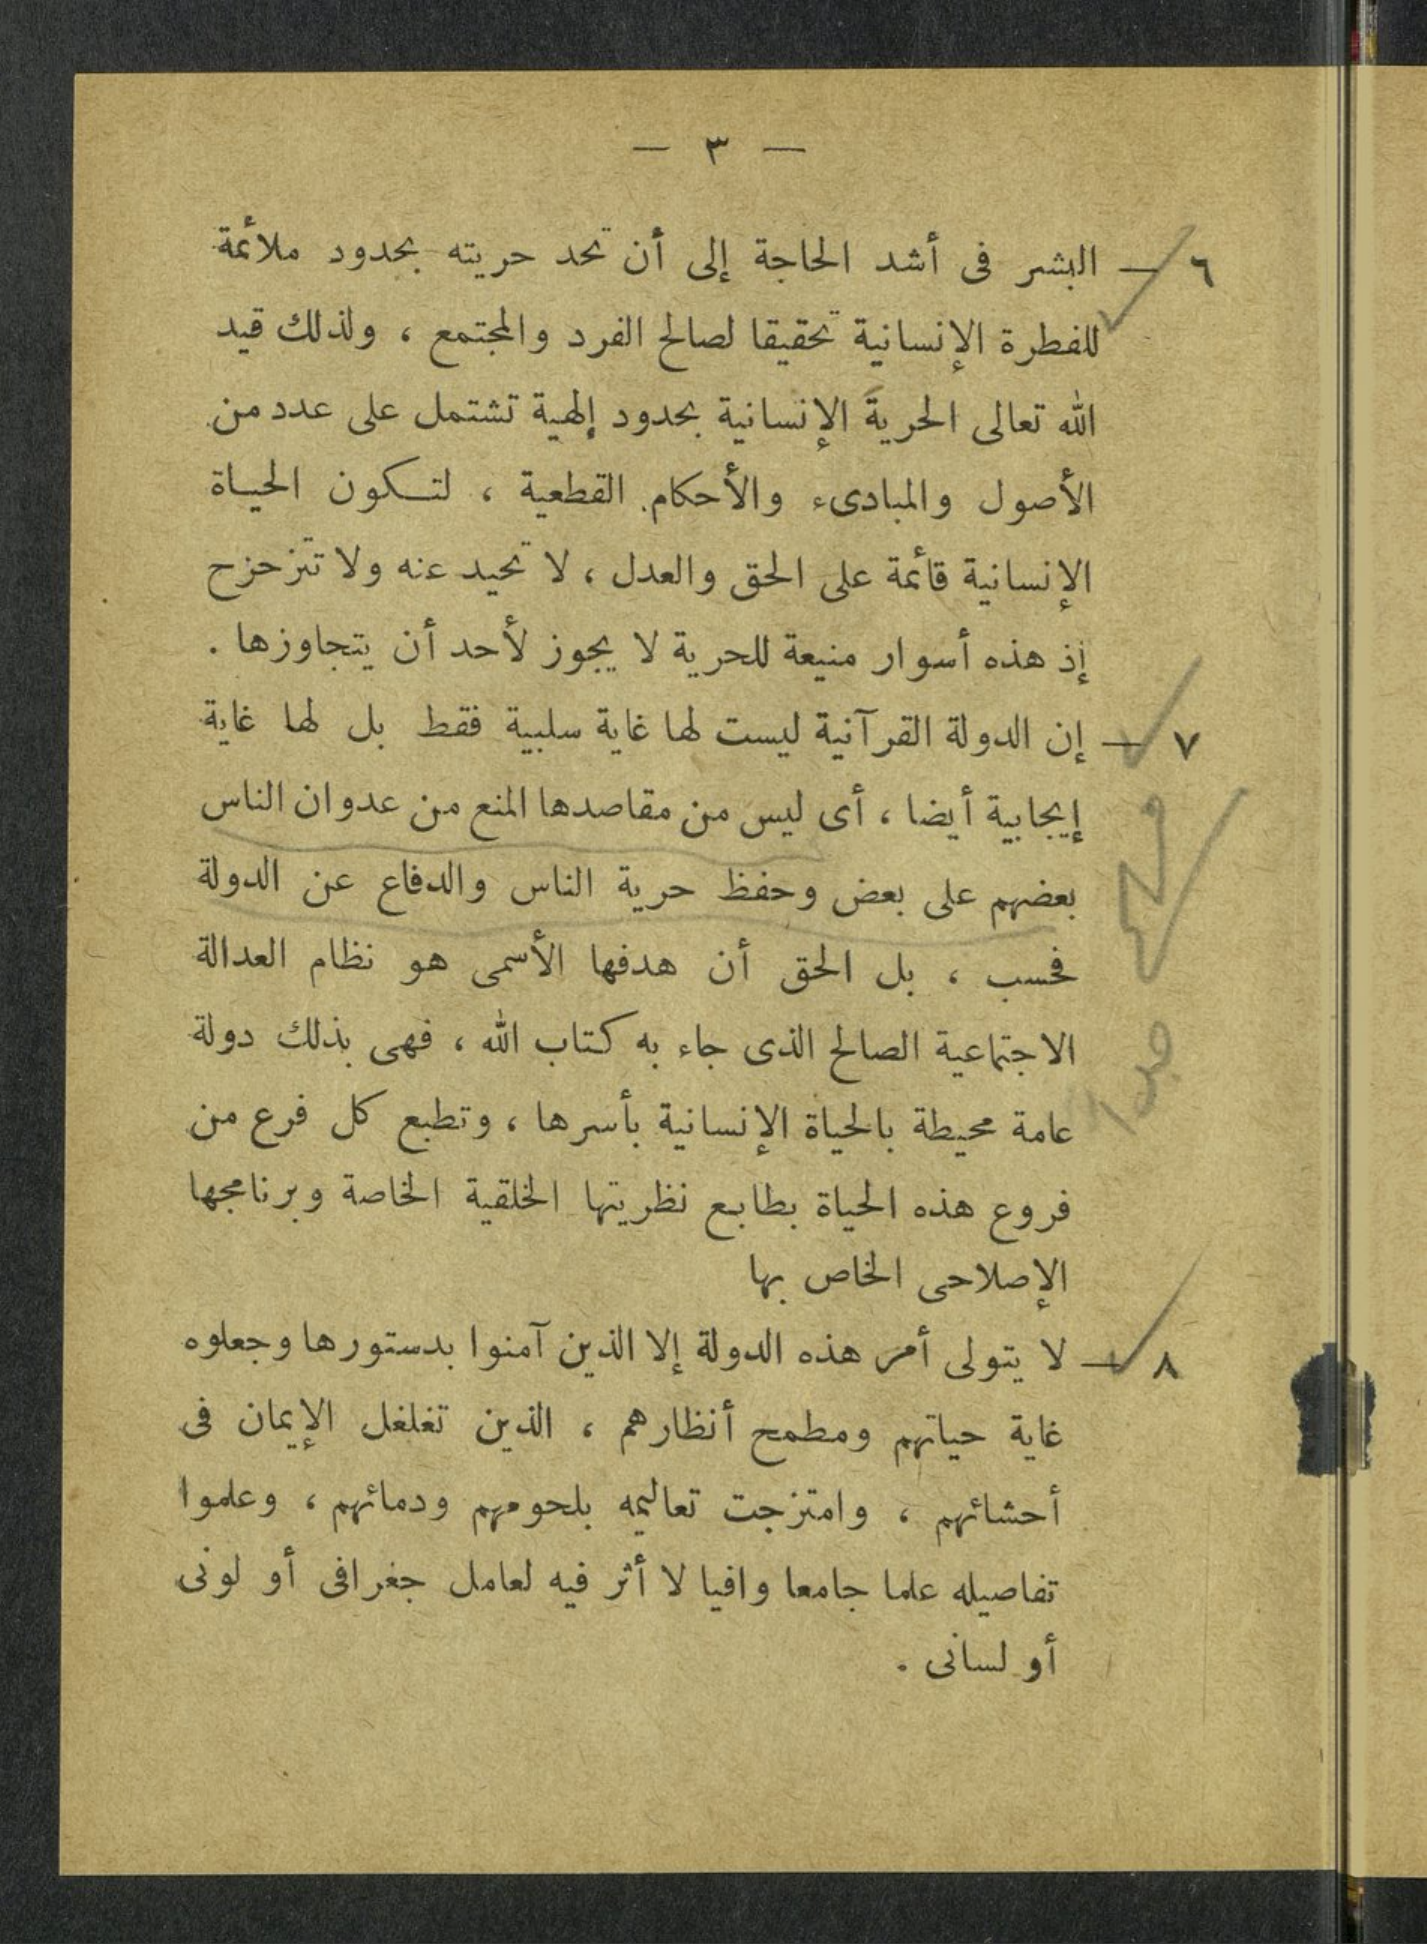 — ٣ —
٦ — البشر فى أشد الحاجة إلى أن تحد حريته بحدود ملائمة
للفطرة الإنسانية تحقيقا لصالح الفرد والمجتمع ، ولذلك قيد
الله تعالى الحرية الإنسانية بحدود إلهية تشتمل على عدد من
الأصول والمبادىء والأحكام القطعية ، لتكون الحياة
الإنسانية قائمة على الحق والعدل ، لا تحيد عنه ولا تتزحزح
إذ هذه أسوار منيعة للحرية لا يجوز لأحد أن يتجاوزها .
٧ — إن الدولة القرآنية ليست لها غاية سلبية فقط بل لها غاية
إيجابية أيضا ، أى ليس من مقاصدها المنع من عدوان الناس
بعضهم على بعض وحفظ حرية الناس والدفاع عن الدولة
فحسب ، بل الحق أن هدفها الأسمى هو نظام العدالة
الاجتماعية الصالح الذى جاء به كتاب الله ، فهى بذلك دولة
عامة محيطة بالحياة الإنسانية بأسرها ، وتطبع كل فرع من
فروع هذه الحياة بطابع نظريتها الخلقية الخاصة وبرنامجها
الإصلاحى الخاص بها
٨ — لا يتولى أمر هذه الدولة إلا الذين آمنوا بدستورها وجعلوه
غاية حياتهم ومطمح أنظارهم ، الذين تغلغل الإيمان فى
أحشائهم ، وامتزجت تعاليمه بلحومهم ودمائهم ، وعلموا
تفاصيله علما جامعا وافيا لا أثر فيه لعامل جغرافى أو لونى
أو لسانى .